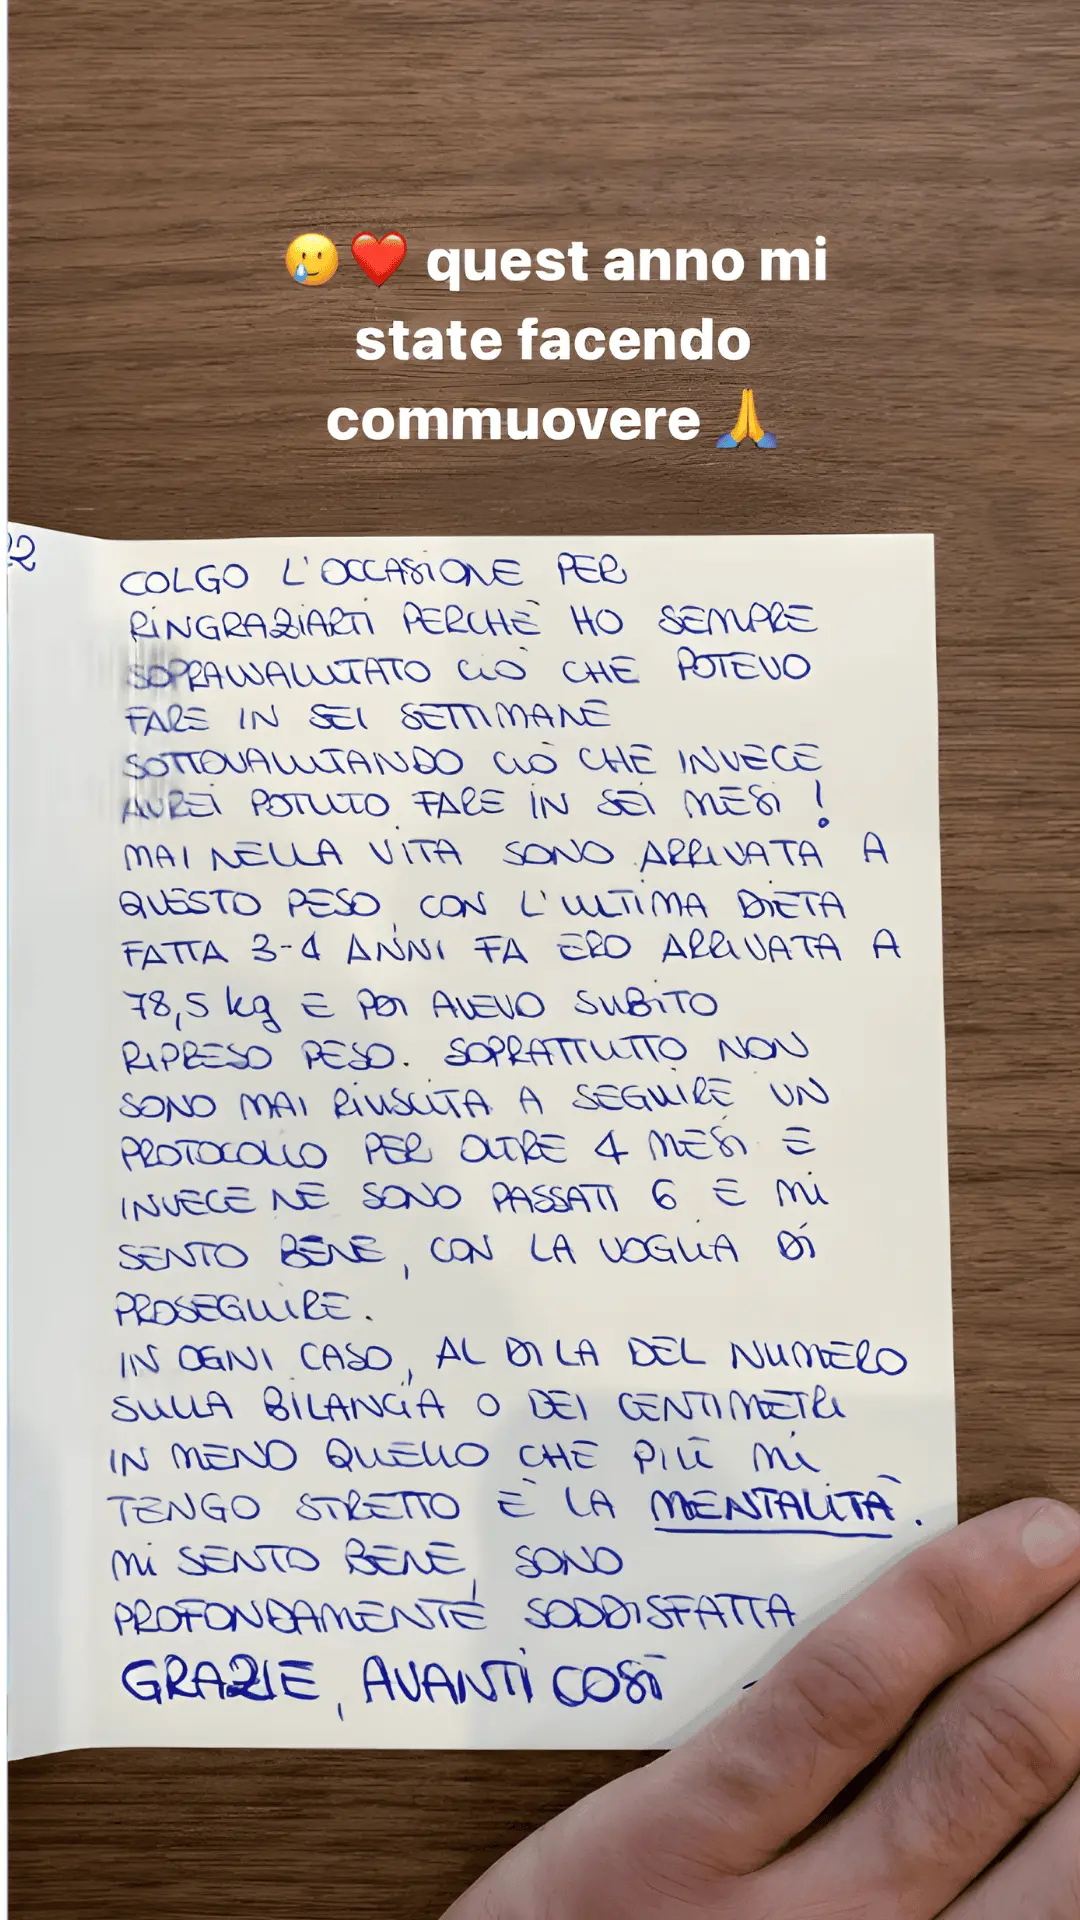 🥲❤️ quest anno mi
state facendo
commuovere 🙏
22
COLGO L'OCCASIONE PER
RINGRAZIARTI PERCHÈ HO SEMPRE
SOPRAVVALUTATO CIÒ CHE POTEVO
FARE IN SEI SETTIMANE
SOTTOVALUTANDO CIÒ CHE INVECE
AVREI POTUTO FARE IN SEI MESI!
MAI NELLA VITA SONO ARRIVATA A
QUESTO PESO, CON L'ULTIMA DIETA
FATTA 3-4 ANNI FA ERO ARRIVATA A
78,5 kg E POI AVEVO SUBITO
RIPRESO PESO. SOPRATTUTTO NON
SONO MAI RIUSCITA A SEGUIRE UN
PROTOCOLLO PER OLTRE 4 MESI E
INVECE NE SONO PASSATI 6 E MI
SENTO BENE, CON LA VOGLIA DI
PROSEGUIRE.
IN OGNI CASO, AL DI LA DEL NUMERO
SULLA BILANCIA O DEI CENTIMETRI
IN MENO QUELLO CHE PIÙ MI
TENGO STRETTO È LA MENTALITÀ.
MI SENTO BENE, SONO
PROFONDAMENTE SODDISFATTA
GRAZIE, AVANTI COSÌ